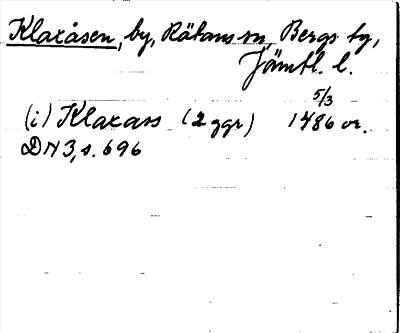 Klaxåsen, by, Rätans sn, Bergs tg,
Jämtl. l.
5/3
(i) Klaxass (2 ggr) 1486 or.
DN 3, s. 696